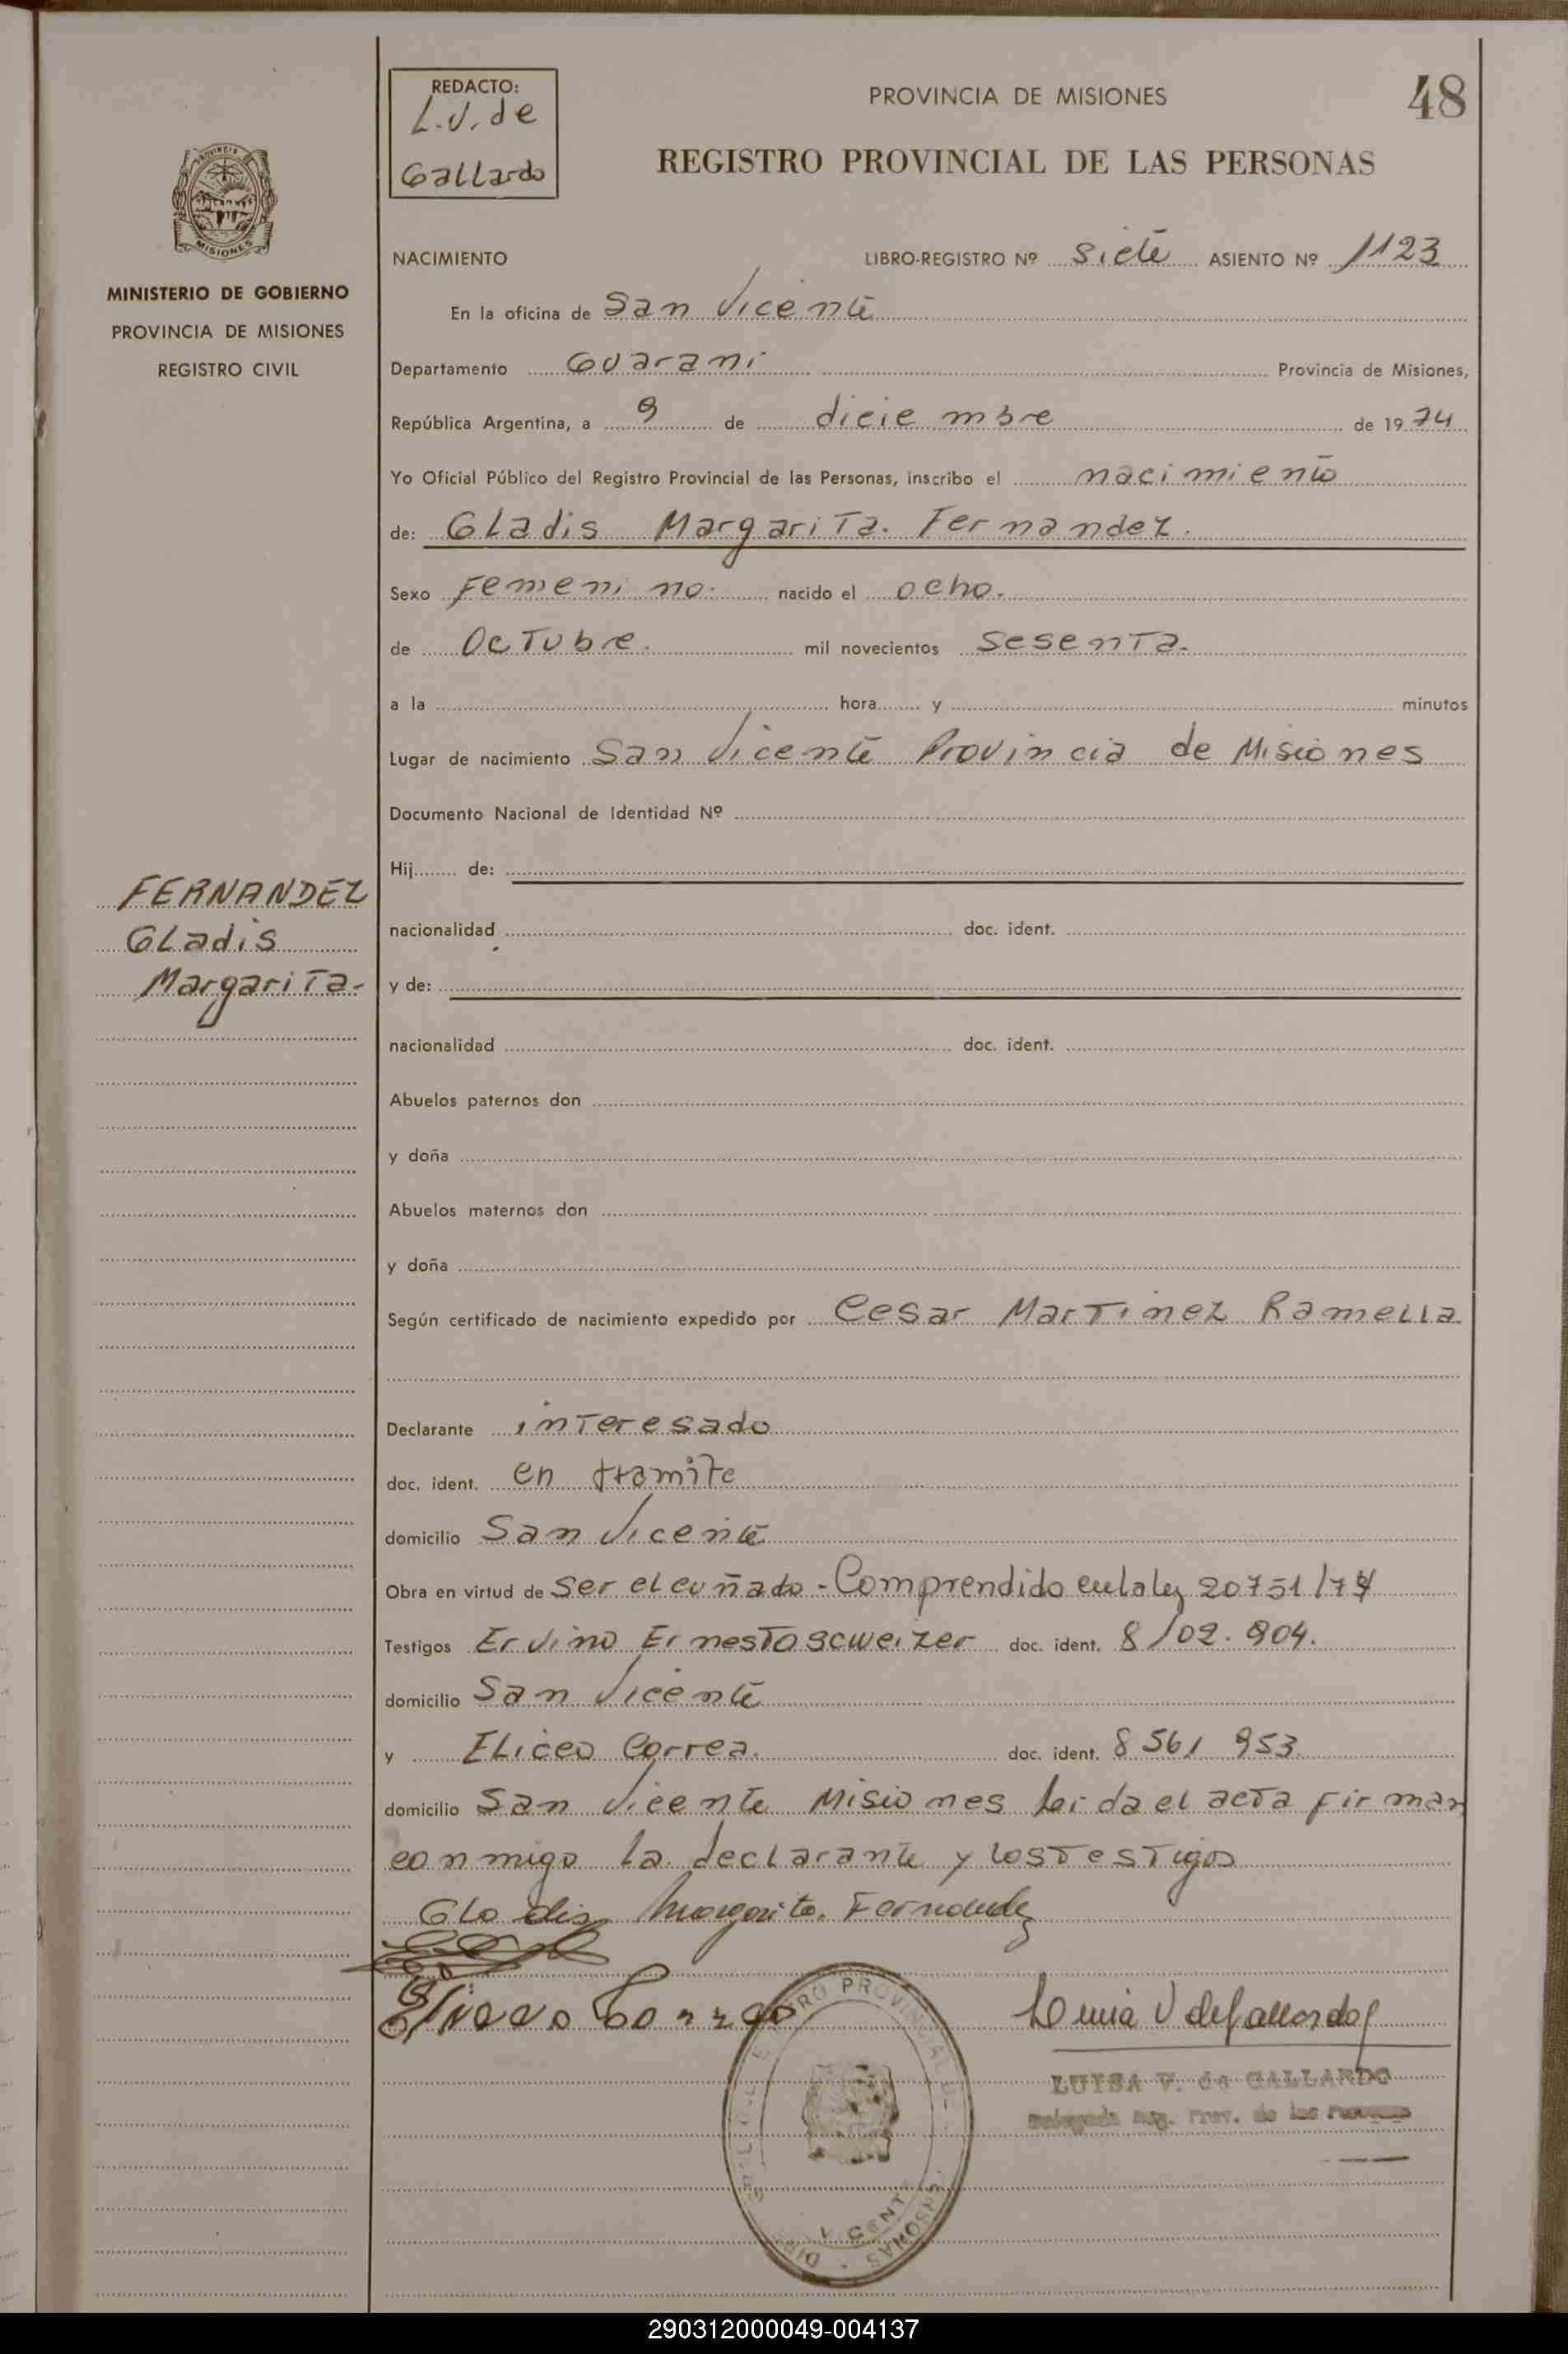 REDACTO:
L.V. de
Gallardo
PROVINCIA DE MISIONES
48
REGISTRO PROVINCIAL DE LAS PERSONAS
MISIONES
MINISTERIO DE GOBIERNO
PROVINCIA DE MISIONES
REGISTRO CIVIL
NACIMIENTO LIBRO-REGISTRO Nº siete ASIENTO Nº 1123
En la oficina de San Vicente
Departamento Guarani Provincia de Misiones,
República Argentina, a 9 de diciembre de 1974
Yo Oficial Público del Registro Provincial de las Personas, inscribo el nacimiento
de: Gladis Margarita Fernandez.
Sexo Femenino. nacido el ocho.
de Octubre. mil novecientos sesenta.
a la hora y minutos
Lugar de nacimiento San Vicente Provincia de Misiones
Documento Nacional de Identidad Nº
Hij de:
FERNANDEZ
Gladis
Margarita-
nacionalidad doc. ident.
y de:
nacionalidad doc. ident.
Abuelos paternos don
y doña
Abuelos maternos don
y doña
Según certificado de nacimiento expedido por Cesar Martinez Ramella
Declarante interesado
doc. ident. en tramite
domicilio San Vicente
Obra en virtud de ser el cuñado - Comprendido en la ley 20751/74
Testigos Ervino Ernesto Scweizer doc. ident. 8102.904.
domicilio San Vicente
y Eliceo Correa. doc. ident. 8561953
domicilio San Vicente Misiones leida el acta firman
conmigo la declarante y los testigos
Gladis Margarita. Fernandez
LUISA V. de GALLARDO
Delegada Reg. Prov. de las Personas
290312000049-004137